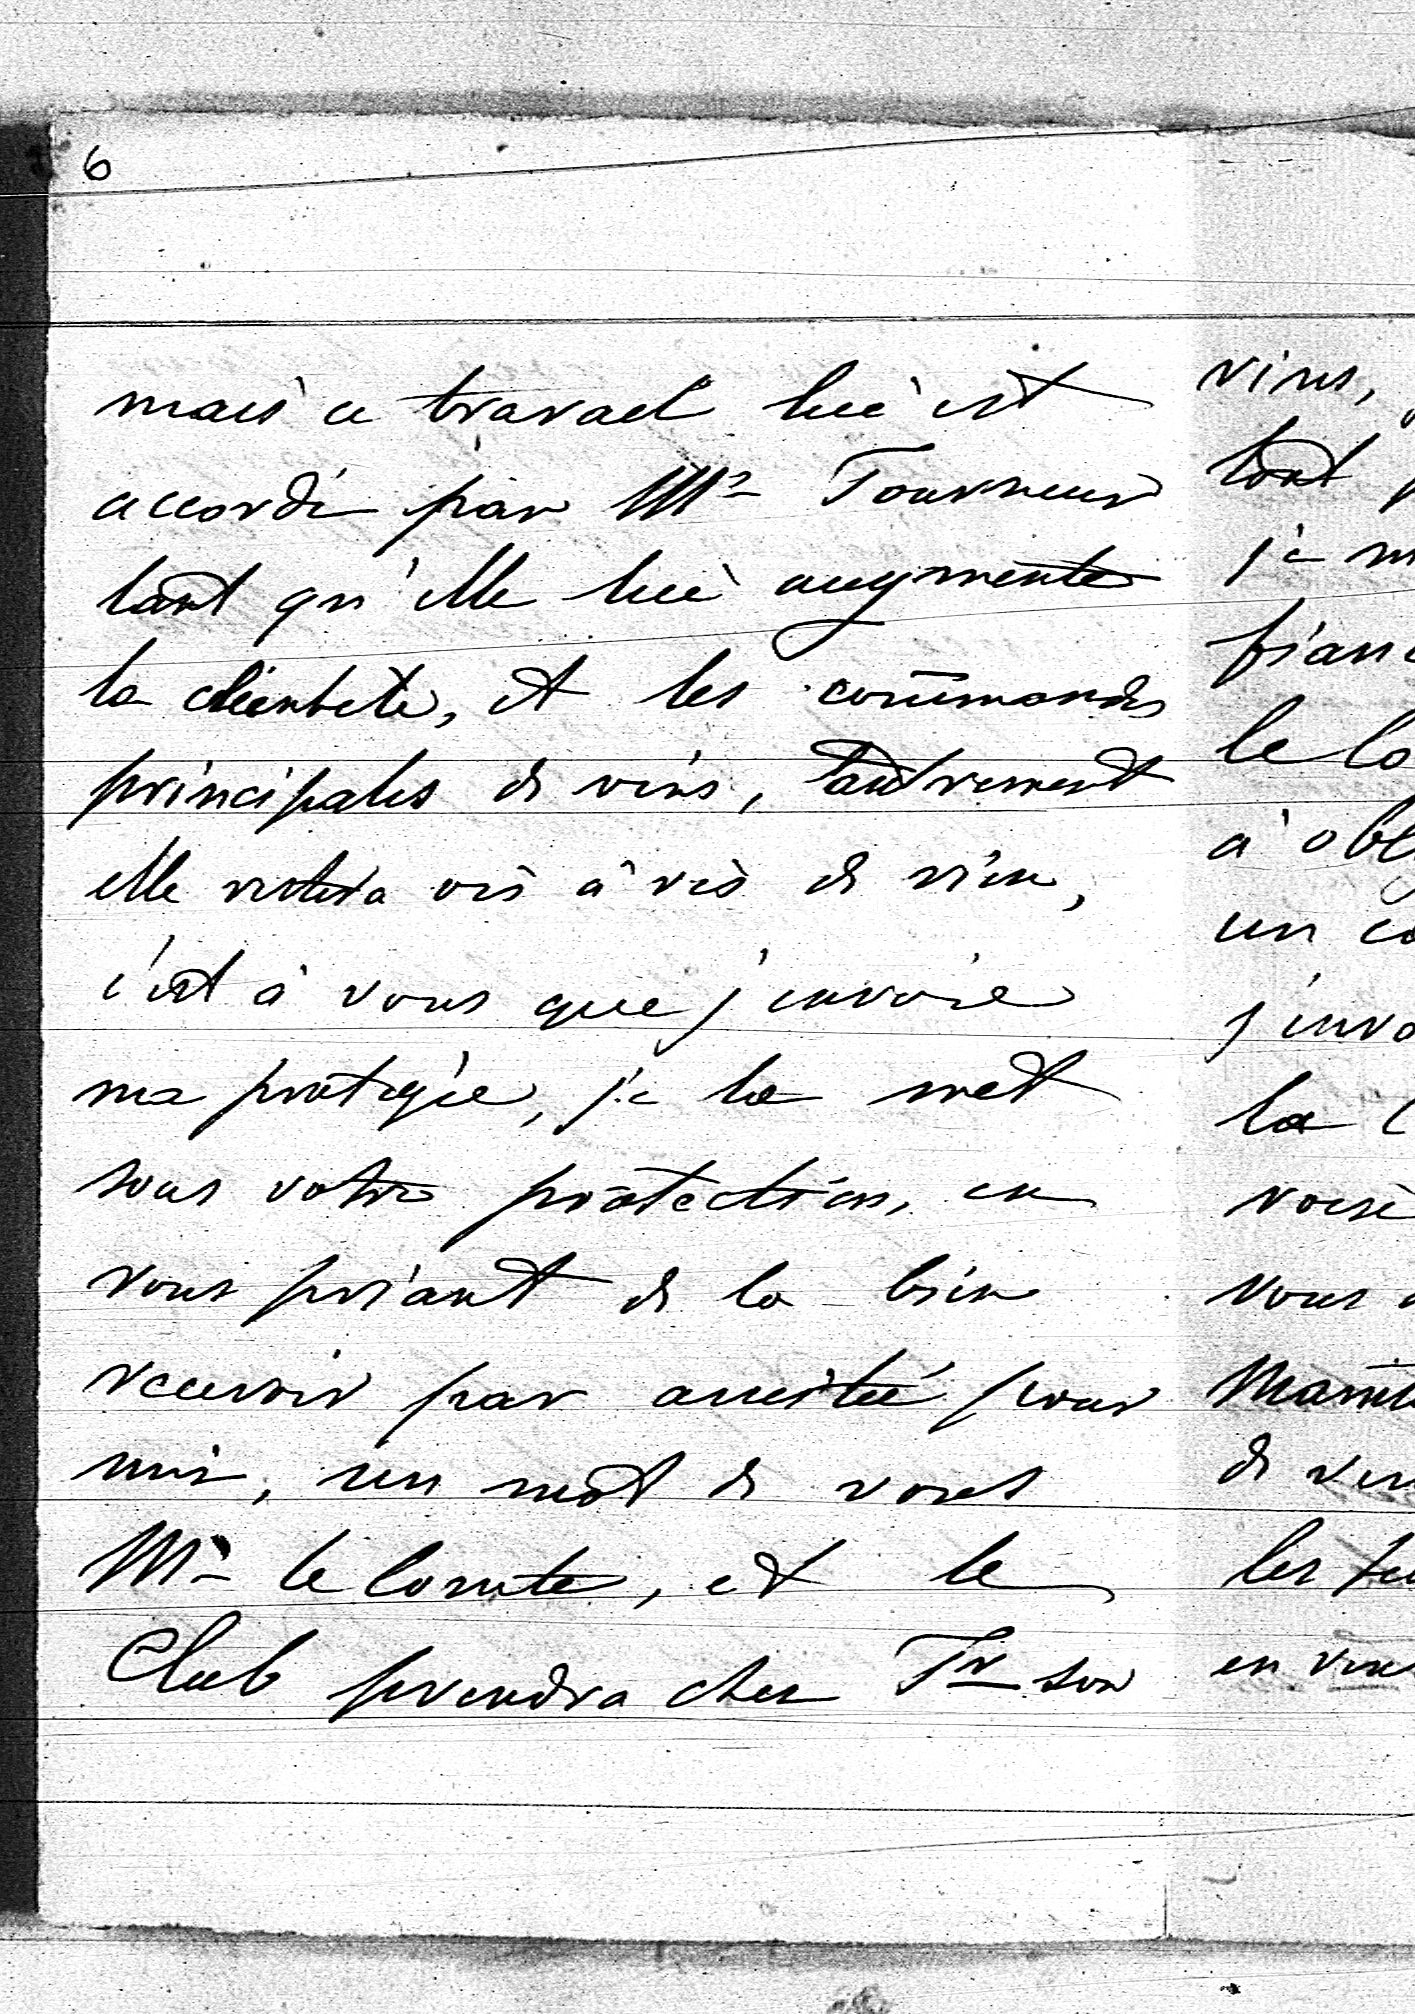 6
mais ce travail lui est
accordé par Mr Tourneur
tant qu'elle lui augmente
la clientele, et les commandes
principales de vins, autrement
elle restera vis à vis de rien,
c'est à vous que j'envoie
ma protégée, je la met
sous votre protection, en
vous priant de la bien
recevoir par amitié pour
moi, un mot de vous
Mr le Comte, et le
Club prendra chez Tr son
vins,
tout
je m
fian
le Co
à obl
un co
j'envo
la
voisi
vous
de
les
en vous